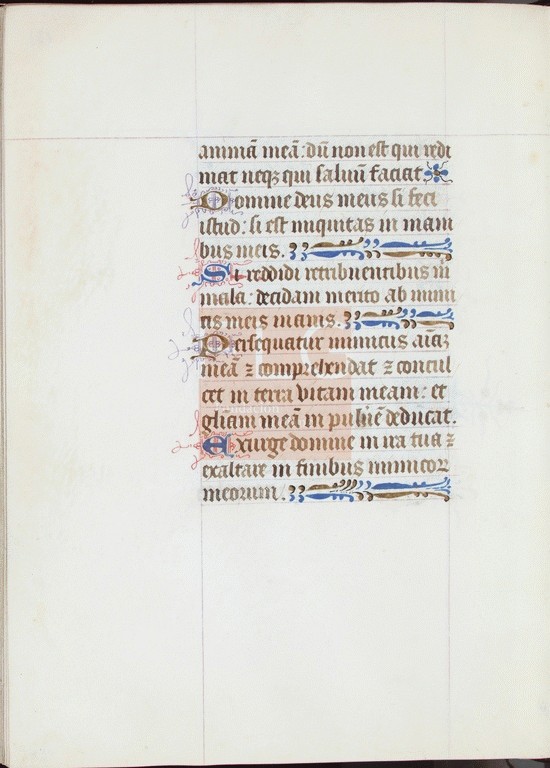 animā meā: dū non est qui redi
mat neqꝫ qui saluū faciat
Domine deus meus si feci
istud: si est iniquitas in mani
bus meis.
Si reddidi retribuentibus m
mala: decidam merito ab inimi
cis meis inanis.
Persequatur inimicus aiaꝫ
meā ⁊ comprehendat ⁊ concul
cet in terra vitam meam: et
gliam meā in puluē deducat.
Exurge domine in ira tua ⁊
exaltare in finibus inimicoꝝ
meorum.